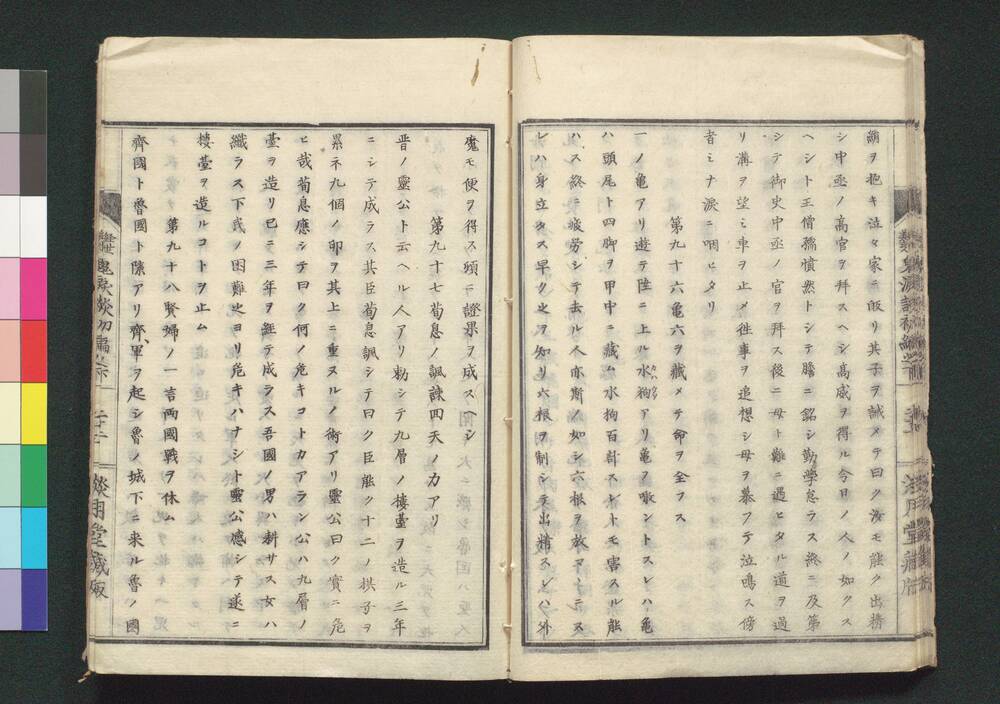 綳ヲ抱キ泣々家ニ皈リ其子ヲ誡メテ曰ク汝モ能ク出精
シ中丞ノ高官ヲ拜スヘシ高威ヲ得ル今日ノ人ノ如クス
ヘシト王僧孺憤然トシテ膽ニ銘シ勤學怠ラス終ニ及第
シテ御史中丞ノ官ヲ拜ス後ニ母ト難ニ遇ヒタル道ヲ過
リ溝ヲ望ミ車ヲ止メ徃事ヲ追想シ母ヲ慕フテ泣鳴ス傍
者ミナ淚ニ咽ヒタリ
第九十六亀六ヲ藏メテ命ヲ全フス
一ノ亀アリ遊テ陸ニ上ル水狗アリ亀ヲ喰ントスレハ亀
ハ頭尾ト四脚ヲ甲中ニ藏ム水狗百計スレトモ害スル能
ハス終ニ疲労シテ去ル人亦斯ノ如シ六根ヲ放アニテス
レハ身立タス早ク之ヲ知リ六根ヲ制シテ出精スレハ外
魔モ便ヲ得ス頭ニ證果ヲ成スヘシ
第九十七荀息ノ諷諫四天ノ力アリ
晋ノ靈公ト云ヘル人アリ勅シテ九層ノ樓臺ヲル造ル三年
ニシテ成ラス其臣荀息諷シテ曰ク臣能ク十二ノ拱子ヲ
累ネ九個ノ卵ヲ其上ニ重ヌルノ術アリ靈公曰ク實ニ危
ヒ哉荀息應シテ曰ク何ノ危キコトカアラン公ハ九層ノ
臺ヲ造リ已ニ三年ヲ經テ成ラス吾國ノ男ハ耕サス女ハ
織ラス下民ノ困難之ヨリ危キハナシト靈公感シテ遂ニ
樓臺ヲ造ルコトヲ止ム
第九十八賢婦ノ一言兩國戰ヲ休ム
齊國ト魯國ト隙アリ齊、軍ヲ起シ魯ノ城下ニ来ル魯ノ國
二十二
月堂藏版